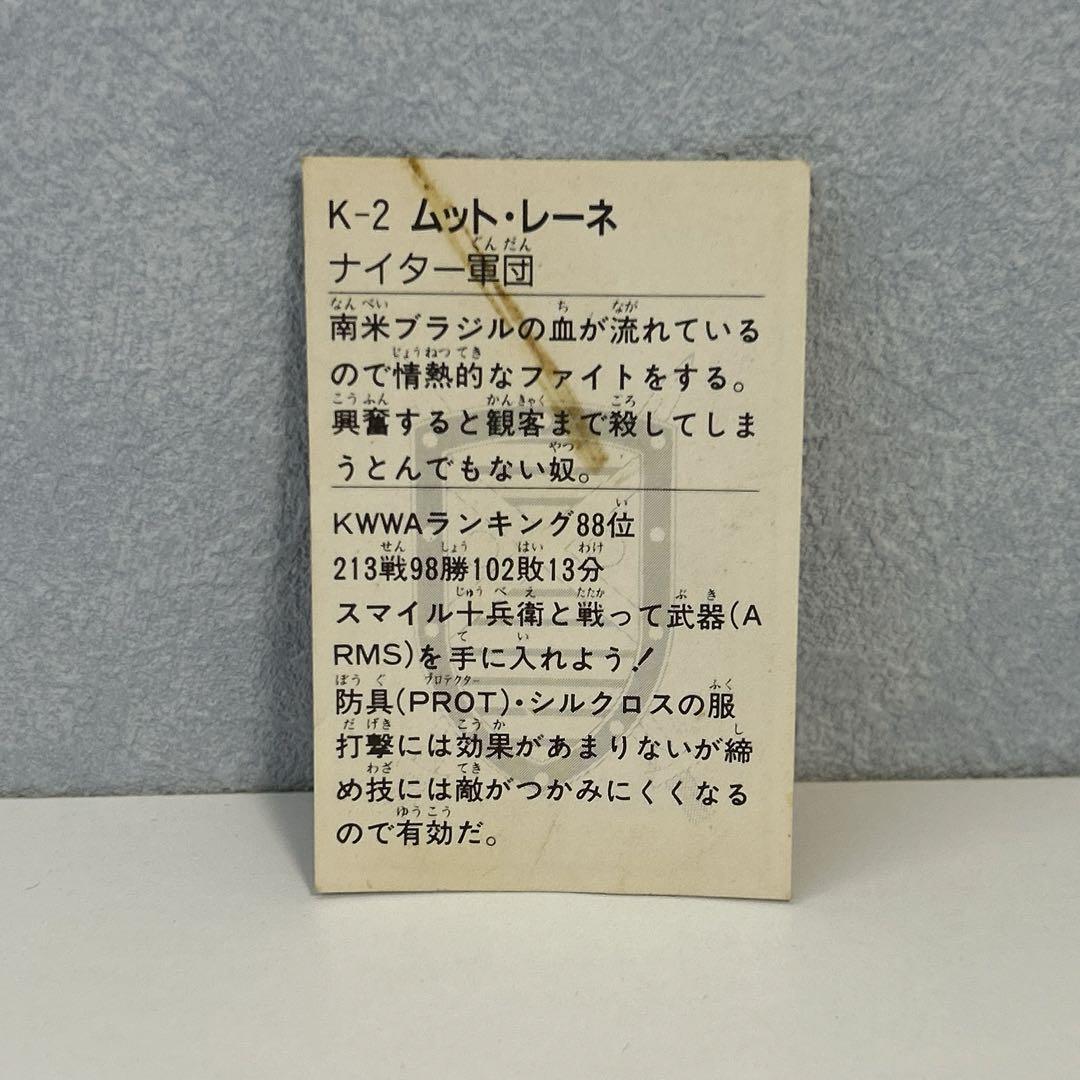 K-2 ムット・レーネ
ナイター軍団
南米ブラジルの血が流れている
ので情熱的なファイトをする。
興奮すると観客まで殺してしま
うとんでもない奴。
KWWAランキング88位
213戦98勝102敗13分
スマイル十兵衛と戦って武器(A
RMS)を手に入れよう!
防具(PROT)・シルクロスの服
打撃には効果があまりないが締
め技には敵がつかみにくくなる
ので有効だ。